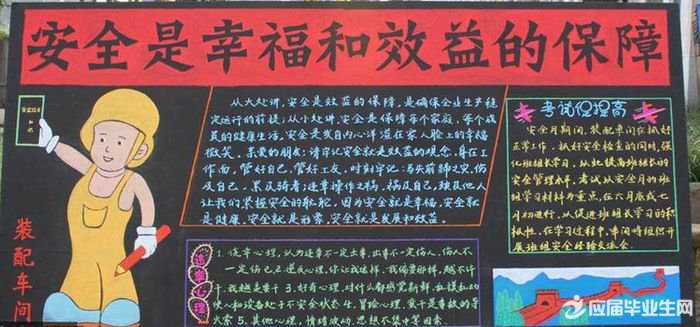 安全是幸福和效益的保障
从大处讲,安全是效益的保障,是确保企业生产稳
定运行的前提;从小处讲,安全是保障每个家庭,每个成
员的健康生活,安全是发自内心洋溢在家人脸上的幸福
微笑。亲爱的朋友:请牢记安全就是效益的观念,身在工
作面,管好自己,管好工友,时刻牢记:
及自己,
让我们掌握安全的舵舵,因为安全就是幸福,安全就
是健康,安全就是形象,安全就是发展和效益。
考试促提高
安全月期间,装配车间在抓好
正常工作,抓好安全检查的同时,强
化班组长学习,从此提高班组长的
安全管理水平,考试从安全月的班
组学习材料为重点,在六月底或七
月初进行,从促进班组长学习的积
极性,在学习过程中,车间将组织开
展班组安全经验交流会。
装配车间
违章心理
1.侥幸心理,认为违章不一定出事,出事不一定伤人,伤人不
一定伤己 2.逆反心理,你让我这样,我偏要那样,越不许
干,我越是要干 3.好奇心理,对什么都感觉新鲜,
使人和设备处于不安全状态 4.冒险心理,
火索 5.其他心理,情绪波动,思想不集中等因素
应届毕业生网